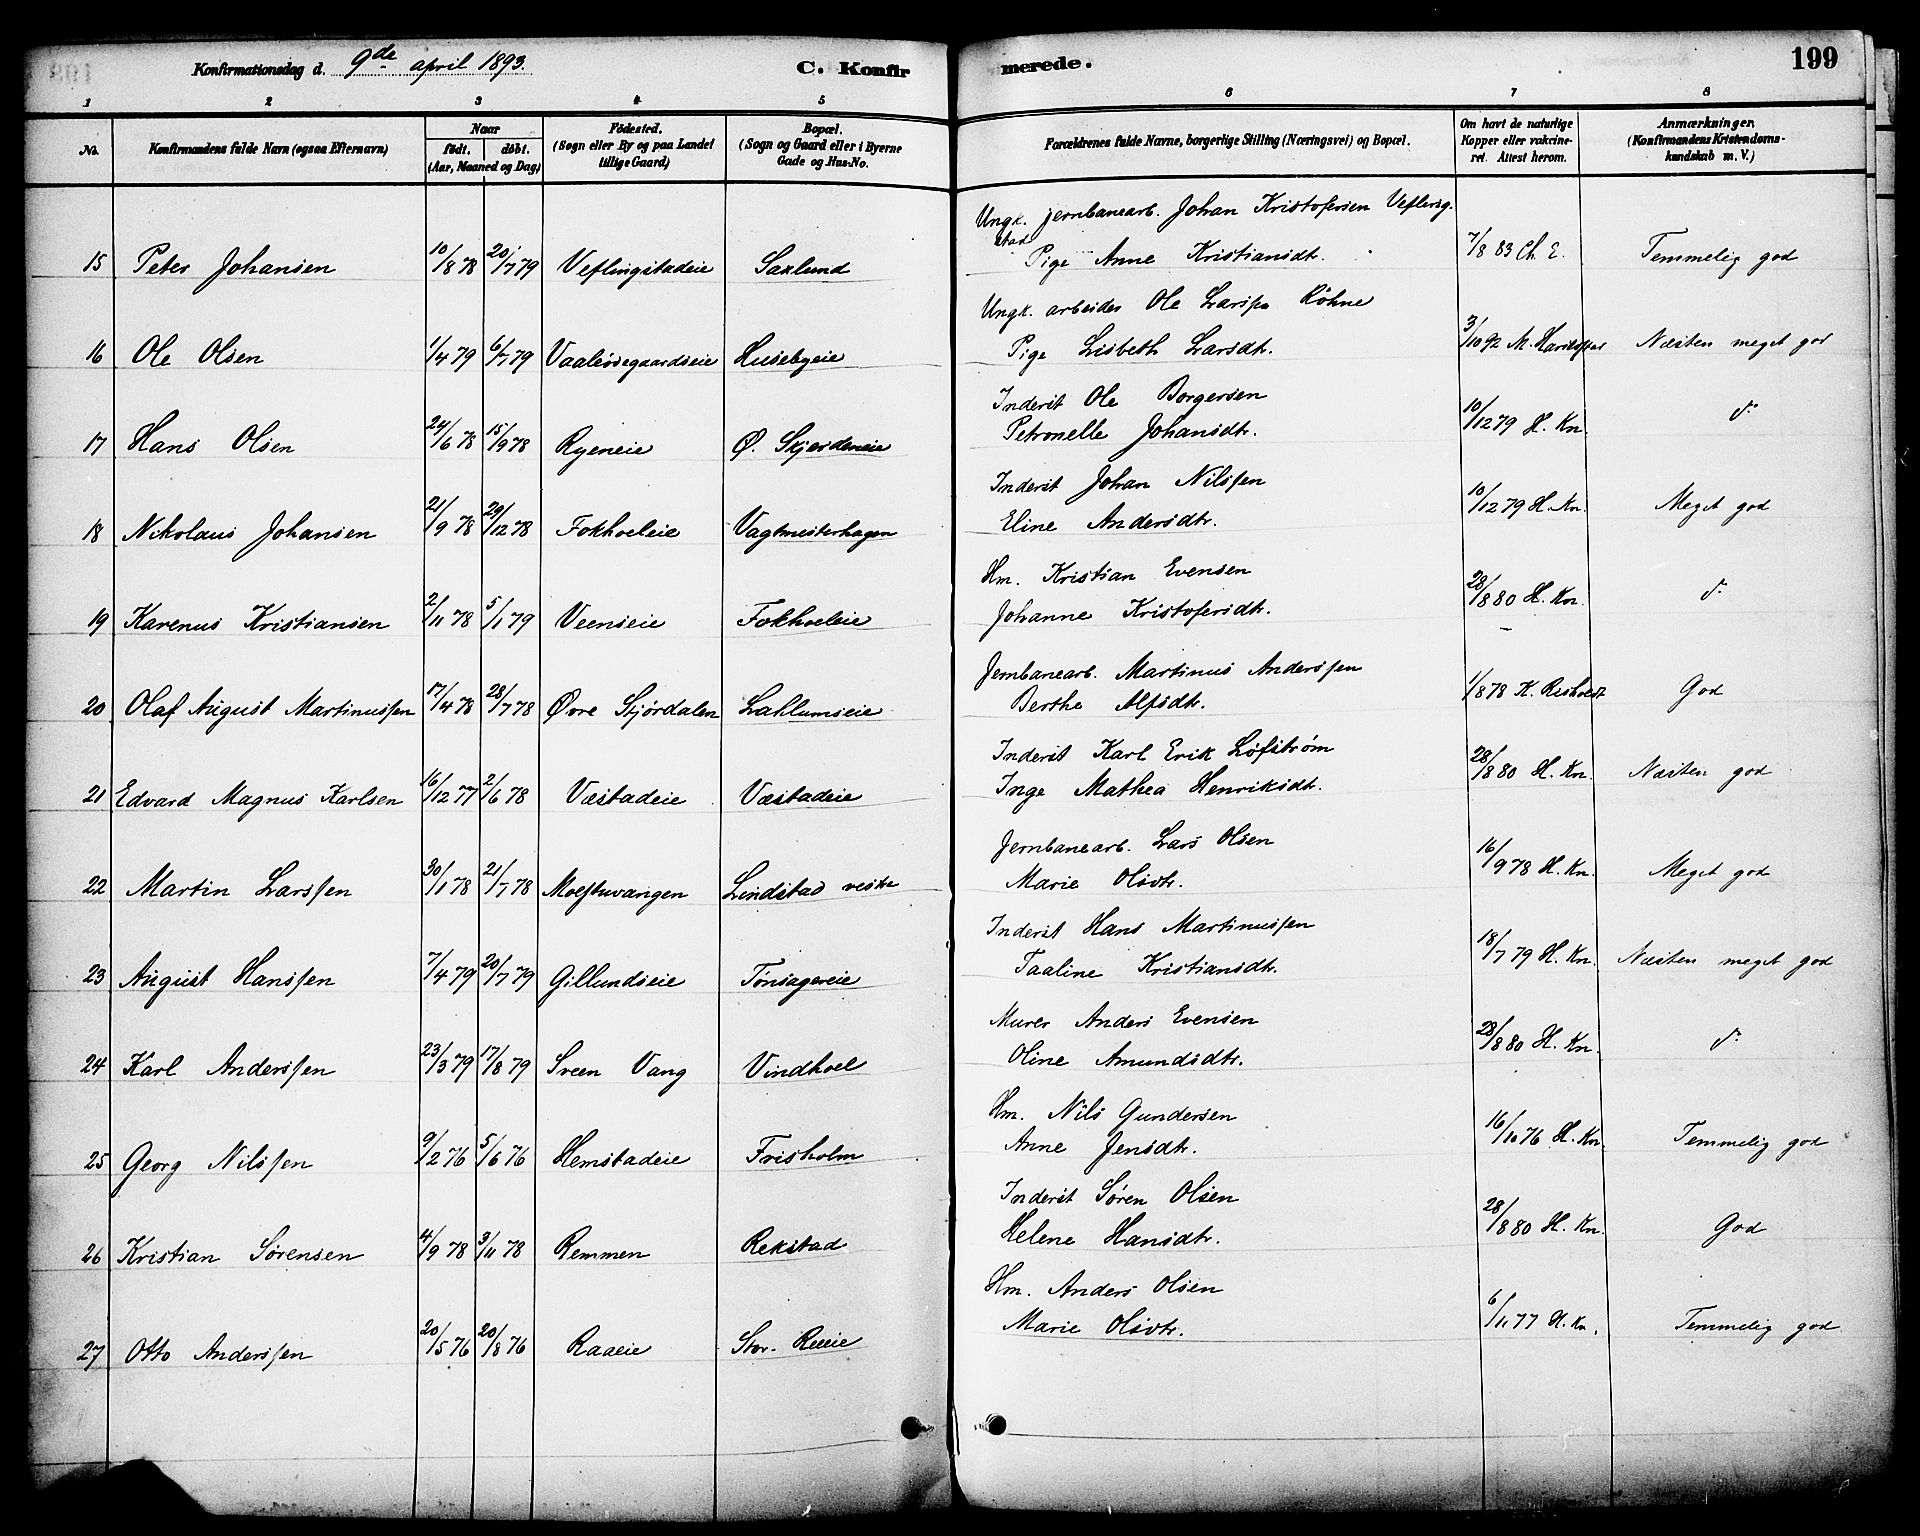 Konfirmationsdag d. 9de april 1893.
C. Konfirmerede.
199
1 2 3 4 5 6 7 8
No.
Konfirmandens fulde Navn (ogsaa Efternavn)
Naar født. døbt. (Aar, Maaned og Dag)
Fødested. (Sogn eller By og paa Landet tillige Gaard)
Bopæl. (Sogn og Gaard eller i Byerne Gade og Hus-No.
Forældrenes fulde Navne, borgerlige Stilling (Næringsvei) og Bopæl.
Om havt de naturlige Kopper eller vakcineret. Attest herom.
Anmærkninger. (Konfirmandens Kristendomskundskab m. V.)
Ungk. jernbanearb. Johan Kristofersen Veflingstad
15 Peter Johansen 10/8 78 20/7 79 Veflingstadeie Saxlund Pige Anne Kristiansdt. 7/8 83 Ch. E. Temmelig god
Ungk. arbeider Ole Larsen Köhne
16 Ole Olsen 1/4 79 6/7 79 Vaaleiesegaardseie Husebyeie Pige Lisbeth Larsdt. 3/10 92 Næsten meget god
Inderst Ole Borgersen
17 Hans Olsen 24/6 78 15/9 78 Ryeneie Ø. Skjerdeneie Petronelle Johansdt. 10/12 79 H. Kn. d:
Inderst Johan Nilssen
18 Nikolaus Johansen 21/9 78 29/12 78 Fokholeie Vagtmesterhagen Eline Andersdtr. 10/12 79 H. Kn. Meget god
Hm. Kristian Evensen
19 Karenus Kristiansen 2/11 78 5/1 79 Veenseie Fokholeie Johanne Kristofersdt. 28/8 80 H. Kn. d:
Jernbanearb. Martinus Anderssen
20 Olaf August Martinussen 17/4 78 28/7 78 Øvre Stjørdalen Laklumseie Berthe Alfsdtr. 1/8 78 K. God
Inderst Karl Erik Løfstrøm
21 Edvard Magnus Karlsen 16/12 77 2/6 78 Væstadeie Væstadeie Inge Mathea Henriksdt. 28/8 80 H. Kn. Næsten god
Jernbanearb. Lars Olsen
22 Martin Larssen 30/1 78 21/7 78 Moestuvangen Lindstad vestre Marie Olsdtr. 16/9 78 H. Kn. Meget god
Inderst Hans Martinussen
23 August Hanssen 7/4 79 20/7 79 Gillundseie Tønsagereie Taaline Kristiansdt. 18/7 79 H. Kn. Næsten meget god
Murer Anders Evensen
24 Karl Anderssen 23/3 79 17/8 79 Sveen Vang Vindhoel Oline Amundsdtr. 28/8 80 H. Kn. d:
Hm. Nils Gundersen
25 Georg Nilssen 9/2 76 5/6 76 Hemstadeie Frisholm Anne Jensdtr. 16/10 76 H. Kn. Temmelig god
Inderst Søren Olsen
26 Kristian Sørensen 4/9 78 3/11 78 Remmen Rekstad Helene Hansdtr. 28/8 80 H. Kn. God
Hm. Anders Olsen
27 Otto Anderssen 20/5 76 20/8 76 Raaeie Stor-Reeie Marie Olsdtr. 6/11 77 H. Kn. Temmelig god